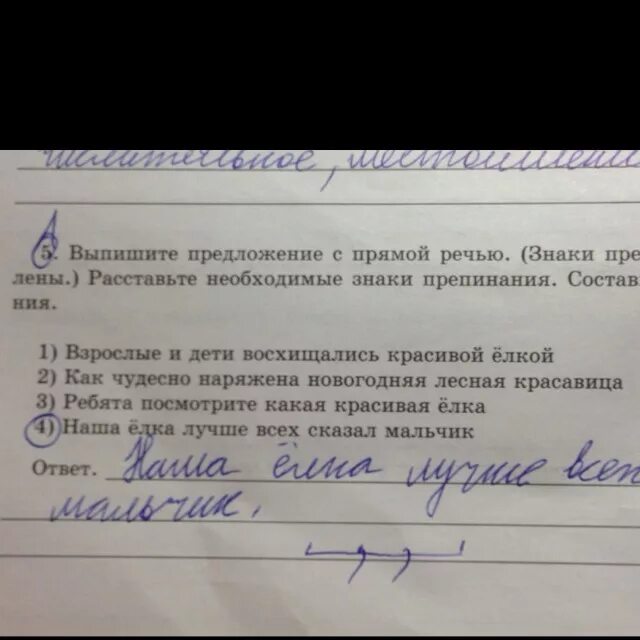 числительное, местоимени
5. Выпишите предложение с прямой речью. (Знаки пре
лены.) Расставьте необходимые знаки препинания. Состав
ния.
1) Взрослые и дети восхищались красивой ёлкой
2) Как чудесно наряжена новогодняя лесная красавица
3) Ребята посмотрите какая красивая ёлка
4) Наша ёлка лучше всех сказал мальчик
Ответ. Наша ёлка лучше всех
мальчик.